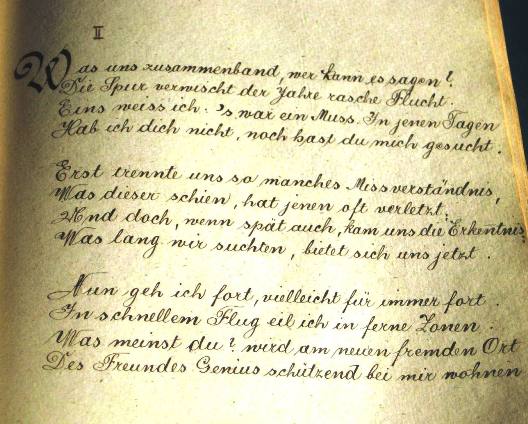 II
Was uns zusammenband, wer kann es sagen?
Die Spur verwischt der Jahre rasche Flucht.
Eins weiss ich: 's war ein Muss. In jenen Tagen
Hab ich dich nicht, noch hast du mich gesucht.
Erst trennte uns so manches Missverständnis,
Was dieser schien, hat jenen oft verletzt.
Und doch, wenn spät auch, kam uns die Erkentnis,
Was lang wir suchten, bietet sich uns jetzt.
Nun geh ich fort, vielleicht für immer fort.
In schnellem Flug eil ich in ferne Zonen.
Was meinst du? wird am neuen fremden Ort
Des Freundes Genius schützend bei mir wohnen